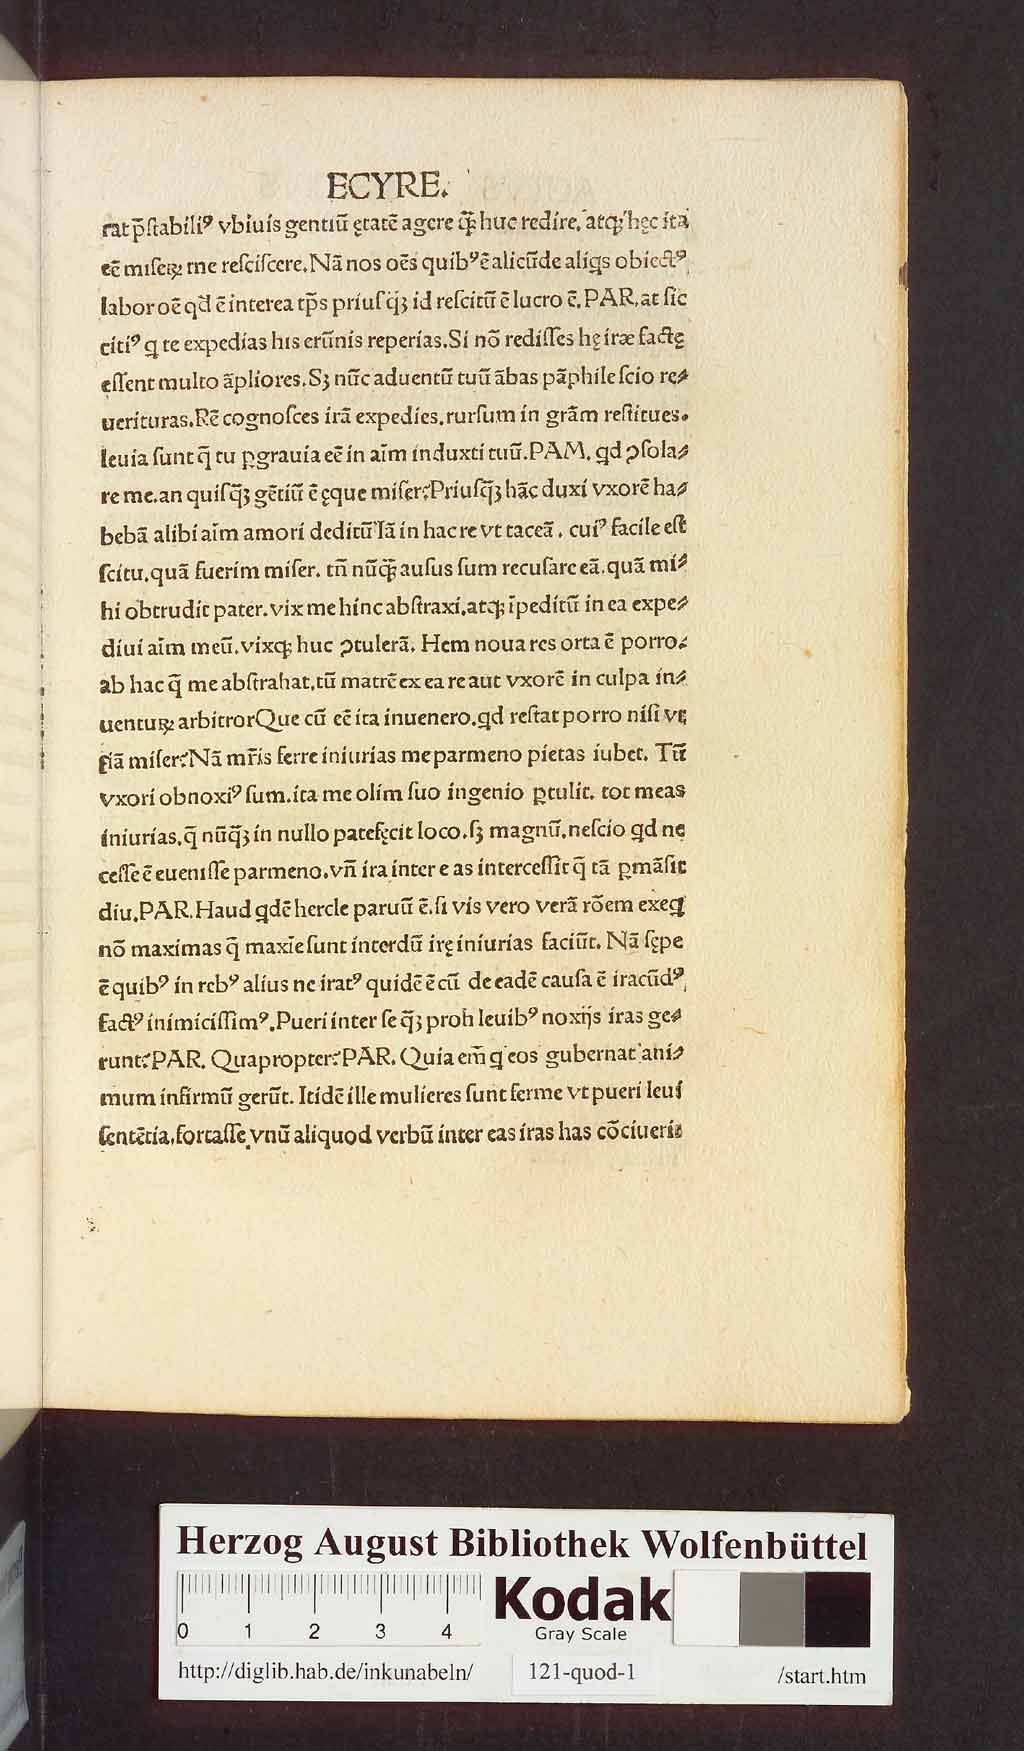 ECYRE.
rat p̄stabiliꝰ vbiuis gentiū ętatē agere q̄ꝫ huc redire. atqꝫ hęc ita
eē miseꝝ me resciscere. Nā nos oēs quibꝰ ē alicūde aliqs obiectꝰ
labor oē qd̄ ē interea tp̄s priusq̄ꝫ id rescitū ē lucro ē. PAR. at sic
citiꝰ q te expedias his erūnis reperias. Si nō redisses hę iræ factę
essent multo āpliores. Sꝫ nūc aduentū tuū ābas pāphile scio re⸗
uerituras. Rē cognosces irā expedies. rursum in grām restitues.
leuia sunt q̄ tu ꝑgrauia eē in aīm induxti tuū. PAM. qd ꝯsola⸗
re me. an quisq̄ꝫ gētiū ē ęque miser? Priusq̄ꝫ hāc duxi vxorē ha⸗
bebā alibi aīm amori deditū Iā in hac re vt taceā. cuiꝰ facile est
scitu. quā fuerim miser. tn̄ nūq̄ꝫ ausus sum recusare eā. quā mi⸗
hi obtrudit pater. vix me hinc abstraxi. atqꝫ īpeditū in ea expe⸗
diui aīm meū. vixqꝫ huc ꝯtulerā. Hem noua res orta ē porro.
ab hac q̄ me abstrahat. tū matrē ex ea re aut vxorē in culpa in⸗
uentuꝝ arbitror Que cū eē ita inuenero. qd restat porro nisi vt
fiā miser? Nā mr̄is ferre iniurias me parmeno pietas iubet. Tū
vxori obnoxiꝰ sum. ita me olim suo ingenio ꝑtulit. tot meas
iniurias. q̄ nūq̄ꝫ in nullo patefęcit loco. sꝫ magnū. nescio qd ne
cesse ē euenisse parmeno. vn̄ ira inter e as intercessit q̄ tā ꝑmāsit
diu. PAR. Haud qdē hercle paruū ē. si vis vero verā rōem exeq
nō maximas q̄ maxīe sunt interdū irę iniurias faciūt. Nā sępe
ē quibꝰ in rebꝰ alius ne iratꝰ quidē ē cū de eadē causa ē iracūdꝰ
factꝰ inimicissimꝰ. Pueri inter se q̄ꝫ proh leuibꝰ noxijs iras ge⸗
runt? PAR. Quapropter? PAR. Quia em̄ q eos gubernat ani⸗
mum infirmū gerūt. Itidē ille mulieres sunt ferme vt pueri leui
sentētia. fortasse vnū aliquod verbū inter eas iras has cōciueri
Herzog August Bibliothek Wolfenbüttel
0 1 2 3 4
Kodak
Gray Scale
http://diglib.hab.de/inkunabeln/ 121-quod-1 /start.htm